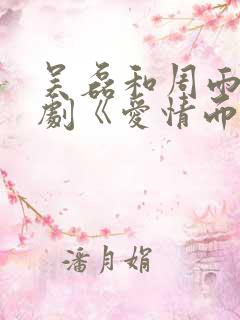 吴磊和周雨
劇《愛情而
潘月娟